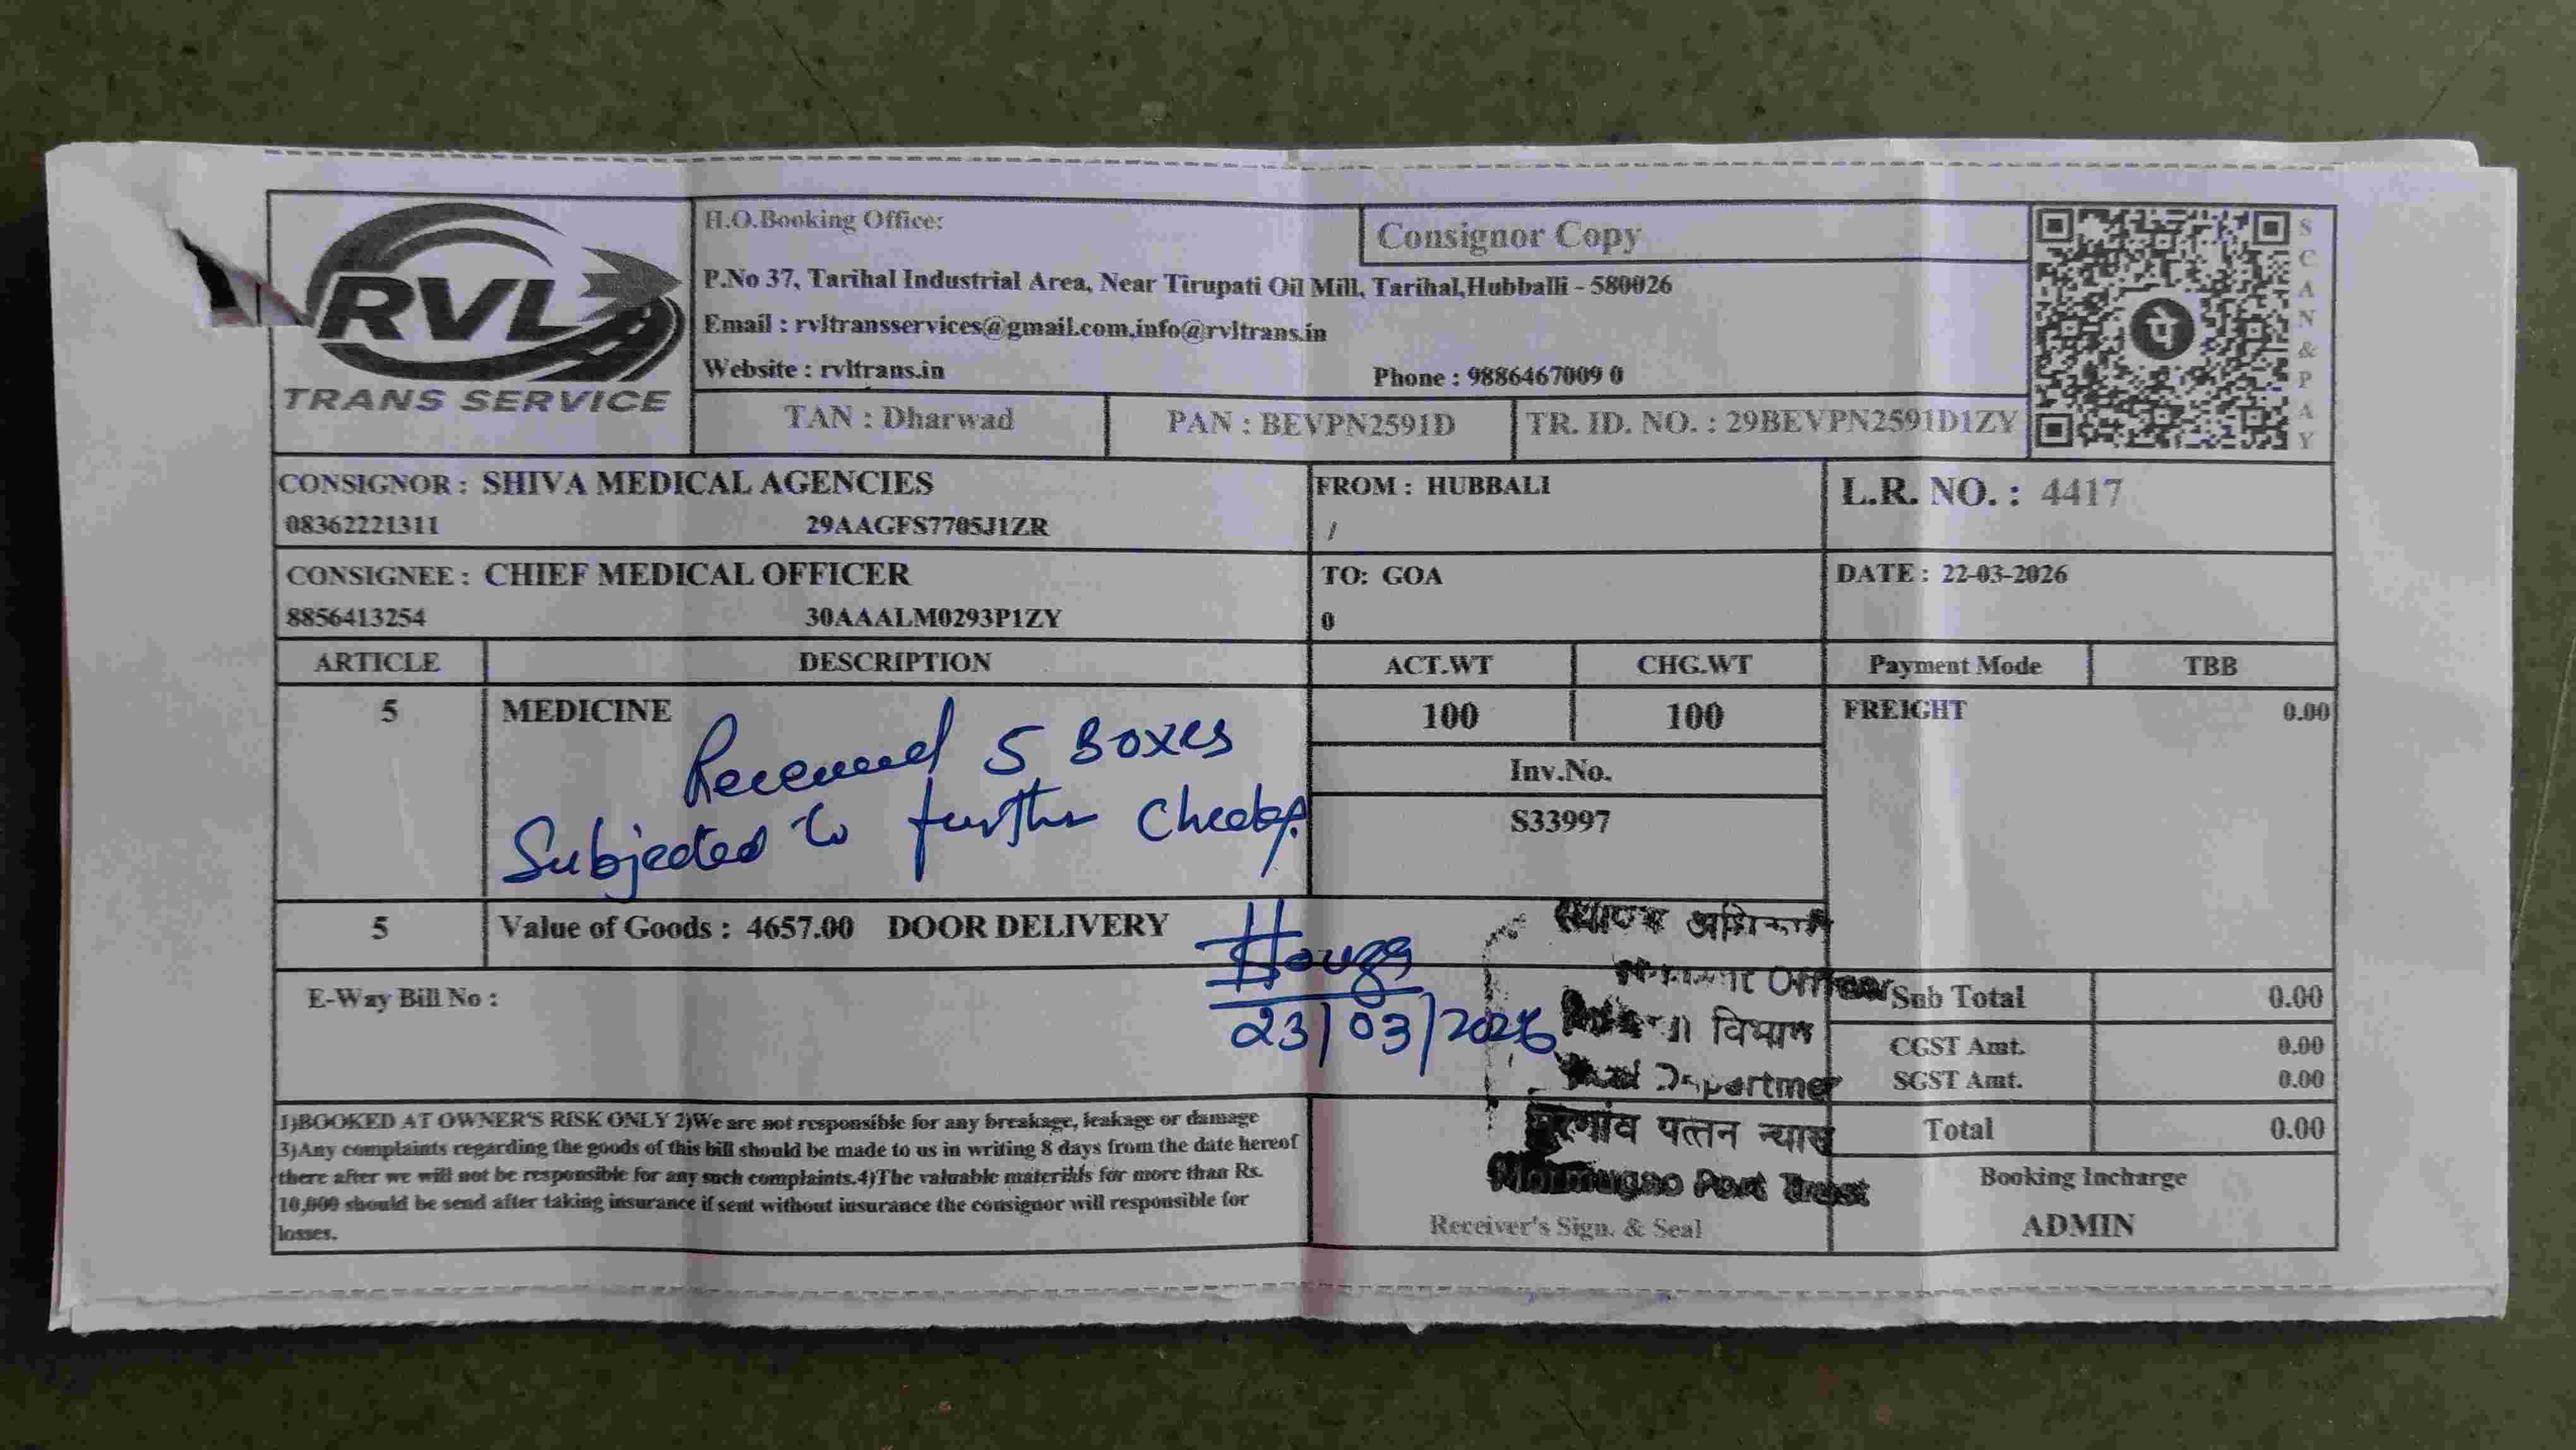 RVL
TRANS SERVICE
H.O.Booking Office:
Consignor Copy
P.No 37, Tarihal Industrial Area, Near Tirupati Oil Mill, Tarihal,Hubballi - 580026
Email : rvltransservices@gmail.com,info@rvltrans.in
Website : rvltrans.in
Phone : 9886467009 0
SCAN&PAY
पे
TAN : Dharwad
PAN : BEVPN2591D
TR. ID. NO. : 29BEVPN2591D1ZY
CONSIGNOR : SHIVA MEDICAL AGENCIES
08362221311 29AAGFS7705J1ZR
FROM : HUBBALI
/
L.R. NO. : 4417
CONSIGNEE : CHIEF MEDICAL OFFICER
8856413254 30AAALM0293P1ZY
TO: GOA
0
DATE : 22-03-2026
ARTICLE DESCRIPTION ACT.WT CHG.WT Payment Mode TBB
5 MEDICINE 100 100 FREIGHT 0.00
Received 5 Boxes
Subjected to further
Inv.No.
S33997
5 Value of Goods : 4657.00 DOOR DELIVERY
23/03/2026
E-Way Bill No :
Officer
विभाग
मुरगांव पत्तन न्यास
Mormugao Port Trust
Sub Total 0.00
CGST Amt. 0.00
SGST Amt. 0.00
Total 0.00
1)BOOKED AT OWNER'S RISK ONLY 2)We are not responsible for any breakage, leakage or damage
3)Any complaints regarding the goods of this bill should be made to us in writing 8 days from the date hereof
there after we will not be responsible for any such complaints.4)The valuable materials for more than Rs.
10,000 should be send after taking insurance if sent without insurance the consignor will responsible for
losses.
Receiver's Sign. & Seal
Booking Incharge
ADMIN